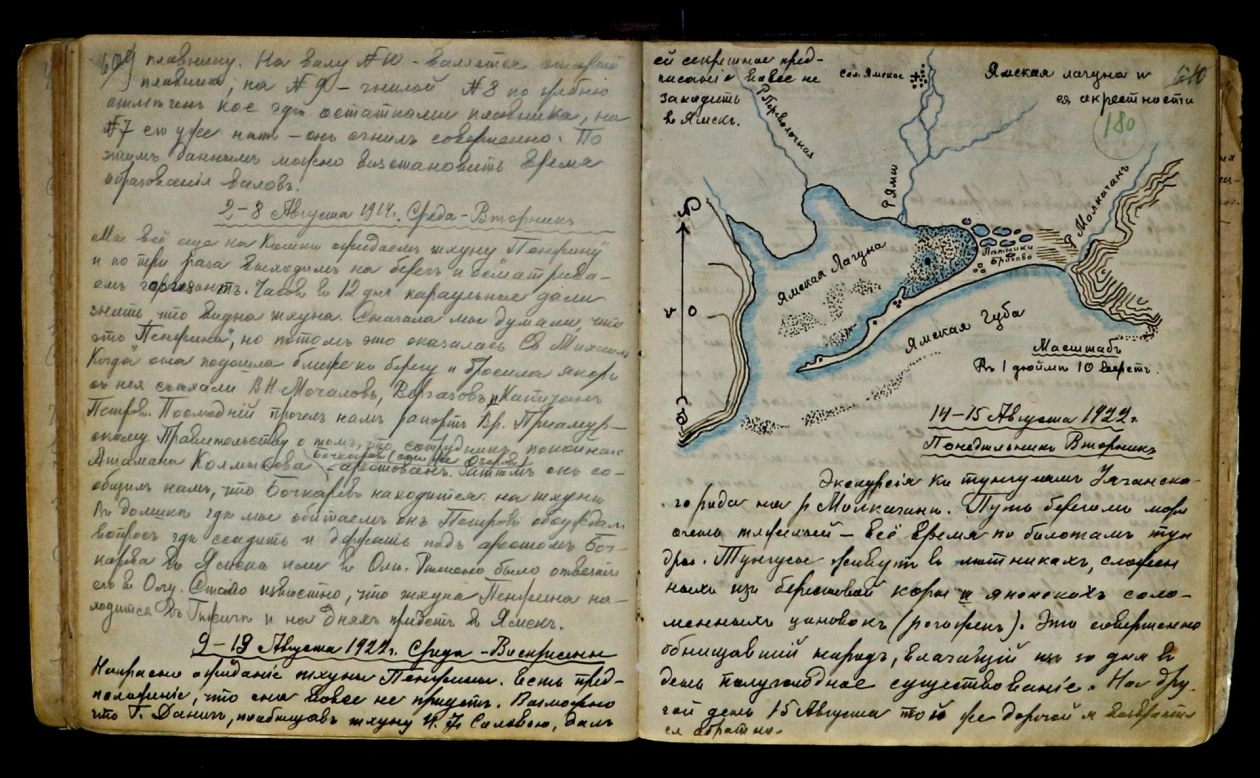 609
плавнику. На валу №10 - валяется старый
плавник; на №9 - гнилой №8 по гребню
отмечен кое гдѣ остатками плавника, на
№7 его уже нетъ - онъ сгнилъ совершенно. По
этимъ даннымъ можно возстановить время
образованія валовъ.
2-8 Августа 1922г. Среда-Вторникъ
Мы всё еще на Кошкѣ ожидаемъ шхуну "Пенжину"
и по три раза выходимъ на берегъ и осматрива-
емъ горизонтъ. Часов в 12 дня караульные дали
знать, что видна шхуна. Сначала мы думали, что
это "Пенжина", но потомъ это оказалась Св. Михаилъ
Когда она подошла ближе къ берегу и бросила якорь
съ нея съѣхали В Н Мочаловъ, Варгазовъ и Капитанъ
Петровъ. Последній прочелъ намъ рапортъ Вр. Приамур-
скому Правительству о томъ, что сотрудникъ покойнаго
Атамана Колмыкова Бочкаревъ арестованъ. Затѣмъ онъ со-
общилъ намъ, что Бочкаревъ находится на шхуне
Въ домикѣ где мы обитаемъ онъ Петровъ обсуждалъ
вопросъ где ссадить и держать подъ арестомъ Боч-
карева въ Ямскѣ или въ Олѣ. Решено было отвезти
его въ Олу. Стало извѣстно, что шхуна Пенжина на-
ходится въ Гижигѣ и на дняхъ придетъ въ Ямскъ.
9-13 Августа 1922г. Среда-Воскресенье
Напрасно ожиданіе шхуны Пенжины. Есть пред-
положеніе, что она вовсе не придетъ. Возможно
что Г. Данич, пообещавъ шхуну Соловею, далъ
ей секретное пред-
писаніе вовсе не
заходить
въ Ямскъ.
Сел. Ямское
Ямская лагуна и
ея окрестности
610
180
Р. Переволочная
Р. Яма
Р. Малкачанъ
С.
Ямская Лагуна
Лѣтники
О
Ямская Губа
Ю
Масштабъ
Въ 1 дюймѣ 10 верстъ.
14-15 Августа 1922г.
Понедѣльникъ Вторникъ
Экскурсія къ тунгусамъ Уяганска-
го рода на р Малкачанъ. Путь берегомъ моря
очень тяжелый - всё время по болотамъ тун
дры. Тунгусы живутъ в летникахъ, сложен
ныхъ изъ березовой коры и японскихъ соло-
менныхъ циновокъ (рогожекъ). Это совершенно
обнищавшій народъ, влачащій изо дня въ
день полуголодное существованіе. На дру-
гой день 15 Августа той же дорогой я возвратил
ся обратно.